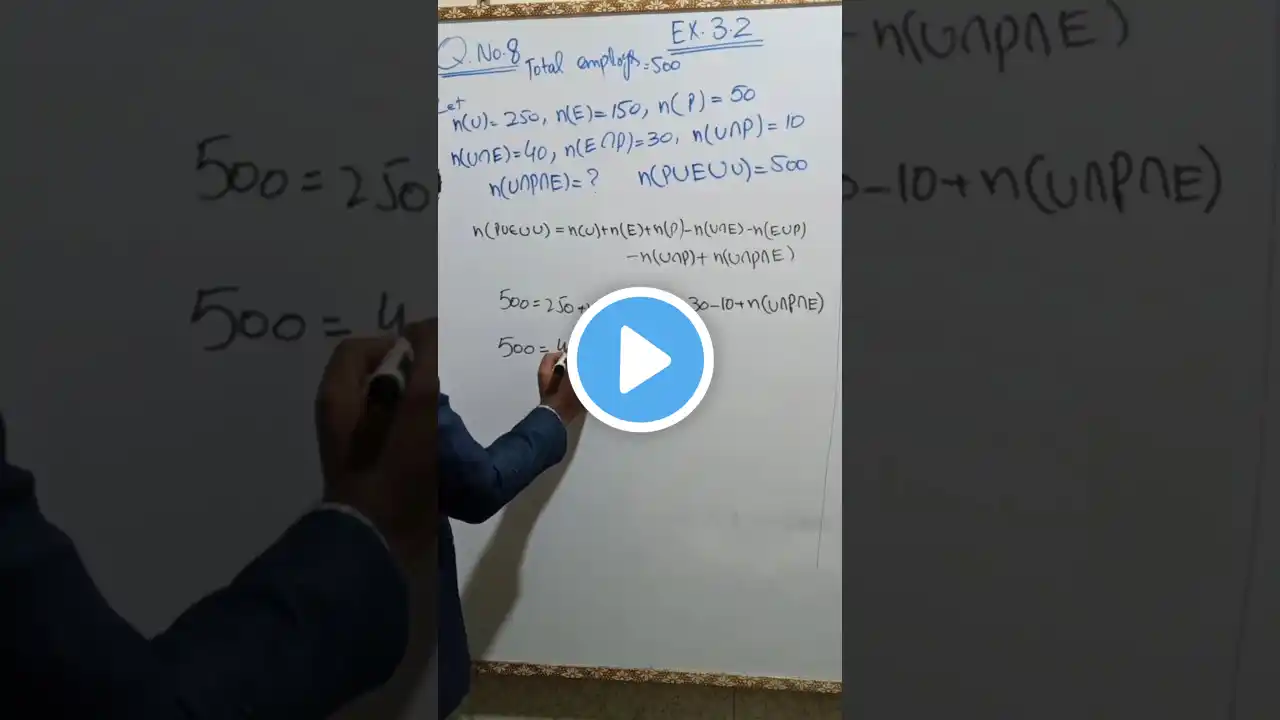 EX. 3.2
Q. No. 8
Total employs = 500
Let
n(U) = 250, n(E) = 150, n(P) = 50
n(U∩E) = 40, n(E∩P) = 30, n(U∩P) = 10
n(U∩P∩E) = ? n(PUEUU) = 500
n(PUEUU) = n(U) + n(E) + n(P) - n(U∩E) - n(EUP)
- n(U∩P) + n(U∩P∩E)
500 = 250 + 30 - 10 + n(U∩P∩E)
500 = 4